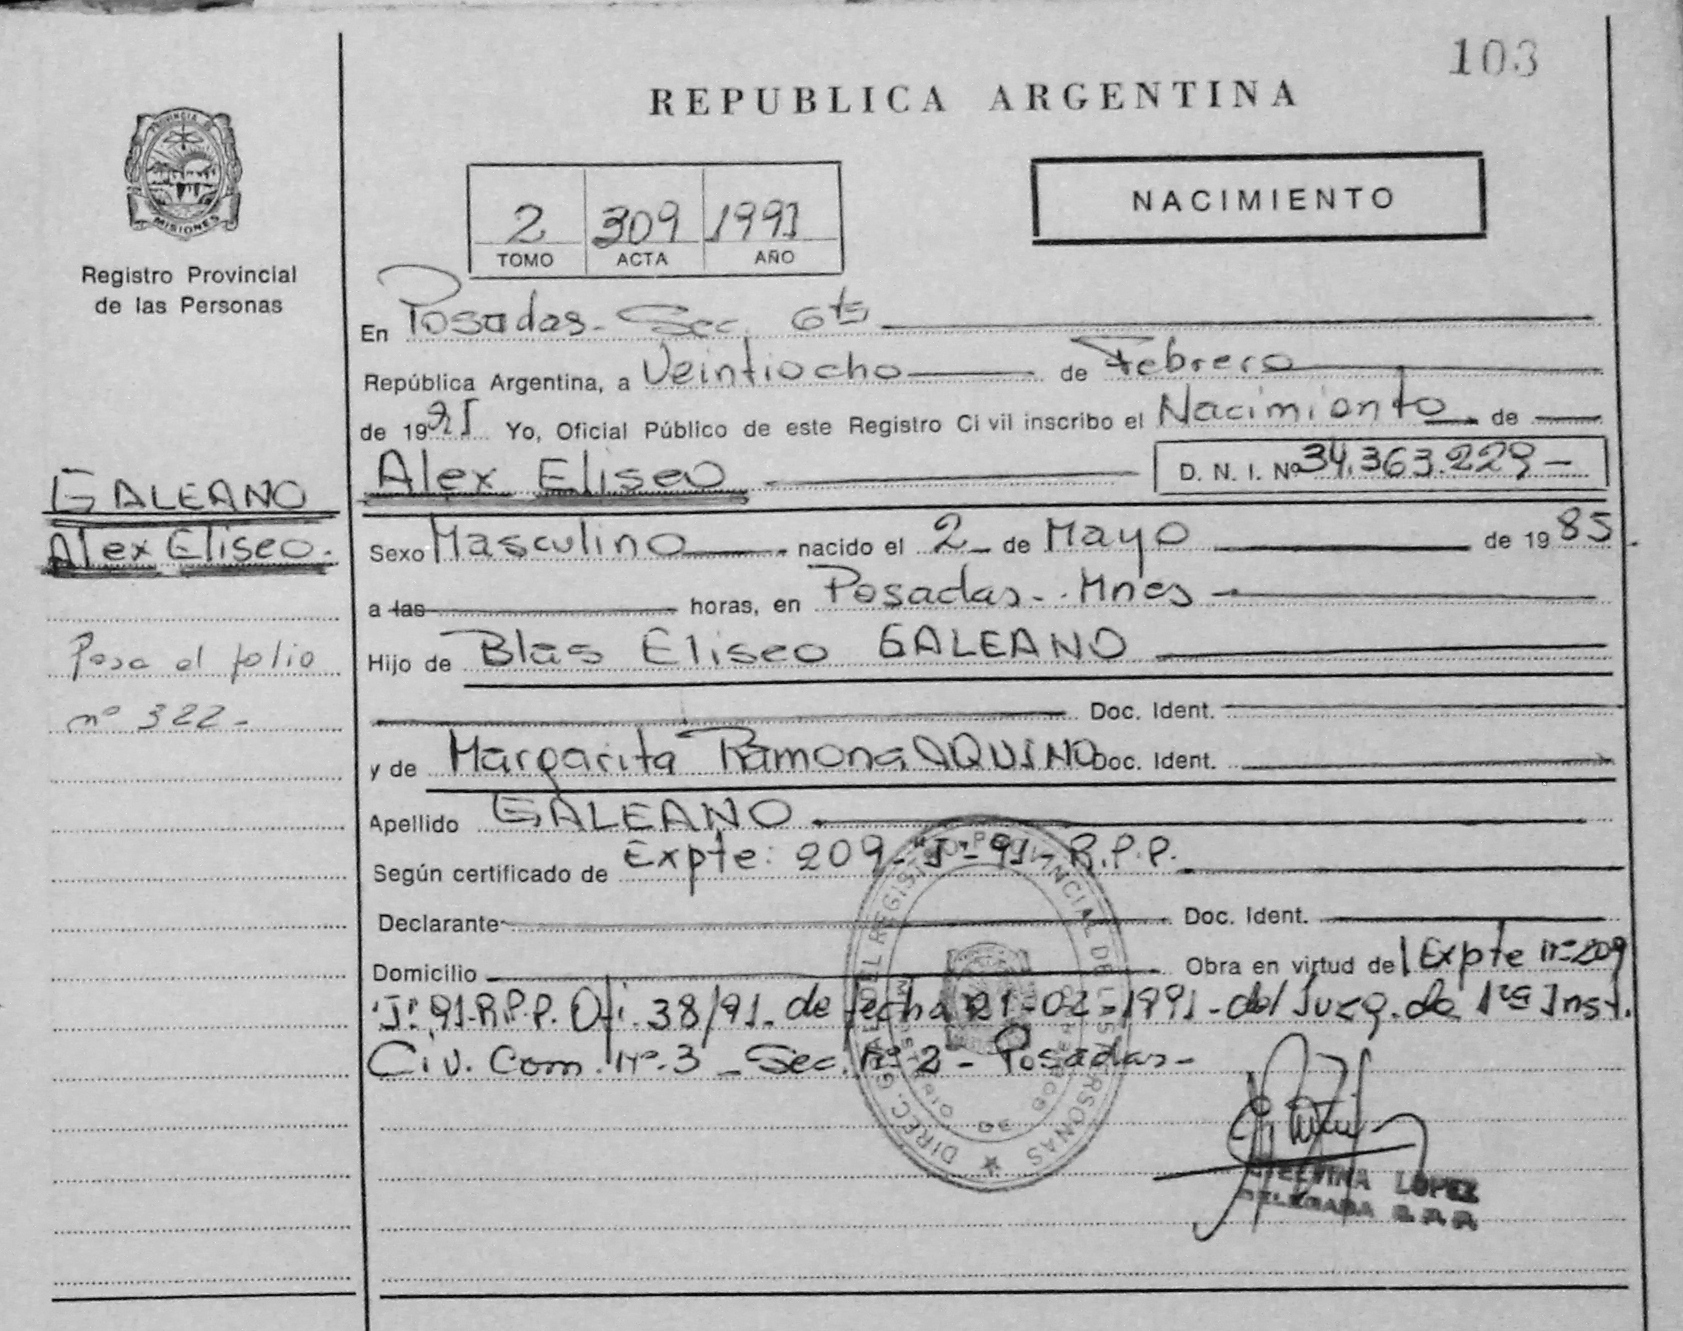 103
REPUBLICA ARGENTINA
PROVINCIA DE
MISIONES
Registro Provincial
de las Personas
2 309 1991
TOMO ACTA AÑO
NACIMIENTO
En Posadas - Sec. 6ta
República Argentina, a Veintiocho de Febrero
de 1991 Yo, Oficial Público de este Registro Civil inscribo el Nacimiento de
GALEANO
Alex Eliseo.
Alex Eliseo D. N. I. Nº 34.363.229 -
Sexo Masculino nacido el 2 de Mayo de 1985.
a las horas, en Posadas - Mnes
Pasa al folio
nº 322 -
Hijo de Blas Eliseo GALEANO
Doc. Ident.
y de Margarita Ramona AQUINO Doc. Ident.
Apellido GALEANO
Según certificado de Expte: 209-"J"-91- R.P.P.
Declarante Doc. Ident.
Domicilio Obra en virtud del Expte nº 209
"J" 91-R.P.P. Ofi. 38/91 - de fecha 21-02-1991 - del Juzg. de 1ra Inst.
Civ. Com. Nº 3 - Sec. Nº 2 - Posadas -
DIREC. GRAL. DEL REGISTRO PROVINCIAL DE LAS PERSONAS
MINISTERIO DE GOBIERNO
LOPEZ
DELEGADA R.P.P.